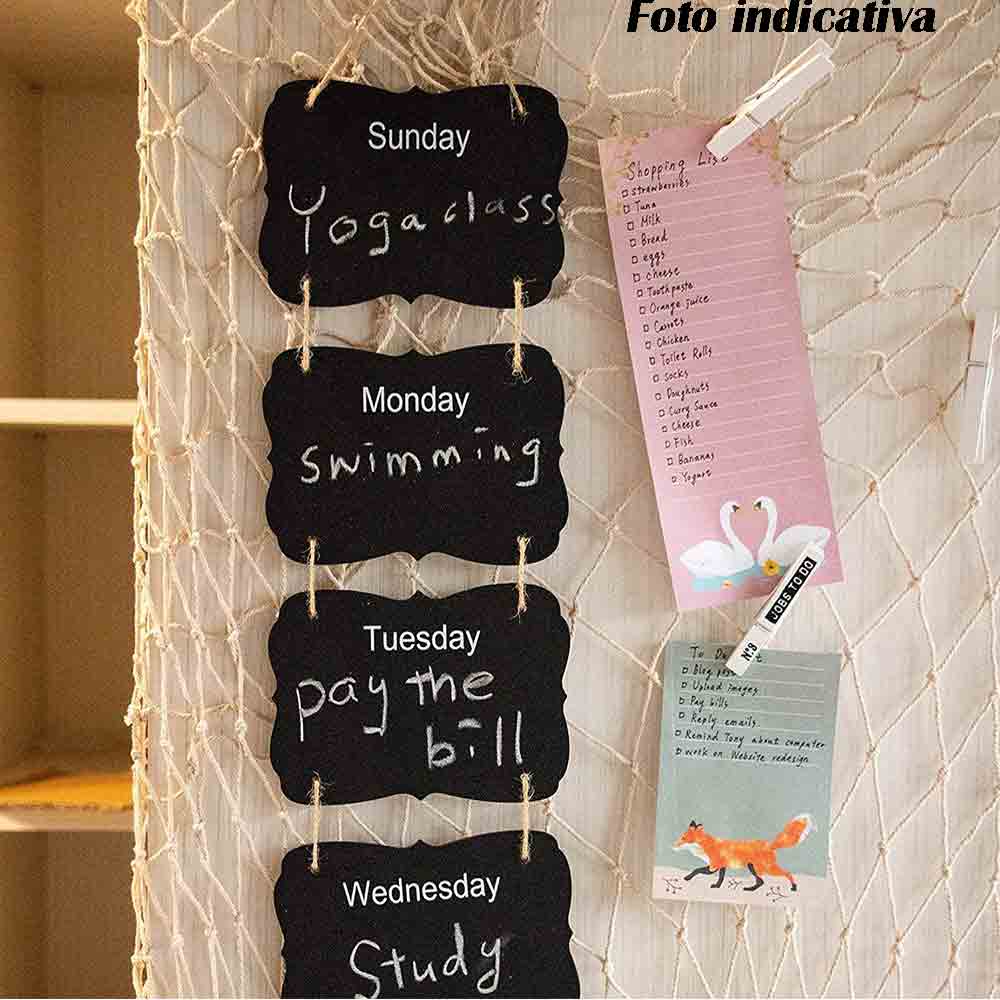 Foto indicativa
Sunday
Yoga class
Monday
swimming
Tuesday
pay the
bill
Wednesday
Study
Shopping List
strawberries
Tuna
Milk
Bread
eggs
cheese
Toothpaste
Orange juice
Carrots
Chicken
Toilet Rolls
socks
Doughnuts
Curry Sauce
Cheese
Fish
Bananas
Yogurt
JOBS TO DO
Nº8
To Do
Blog post
Upload images
Pay bills
Reply emails
Remind Tony about computer
work on Website redesign